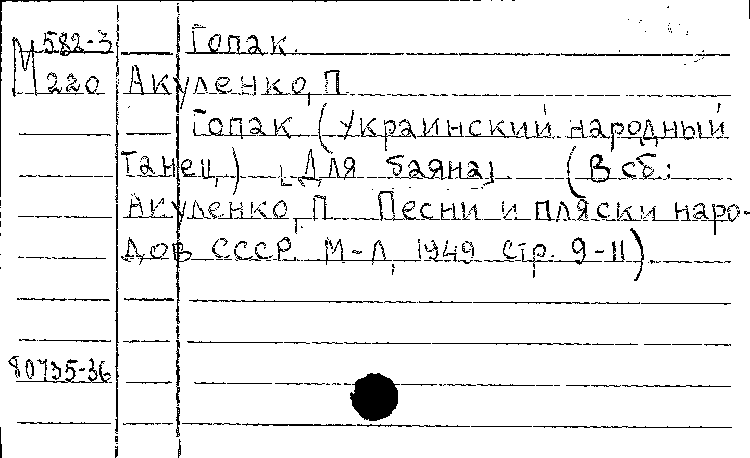 М 582-3 Гопак.
220 Акуленко, П
Гопак (украинский народный
танец) [Для баяна] (В сб.:
Акуленко, П Песни и пляски наро-
дов СССР. М-Л, 1949 стр. 9-11).
80735-36